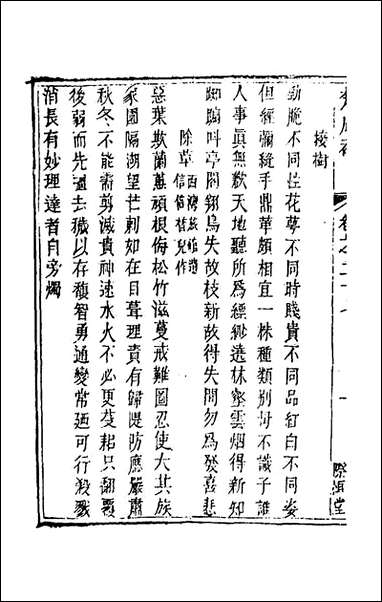 接樹
勁脆不同拉花蕚不同時賤貴不同品紅白不同姿
但經彌縫手鼎華頗相宜一株種類別母不識子誰
人事真無歎天地聽所為經
遺林壑雲烟得新知
叫亭閣翔鳥失故枝新故得失間勿為發喜悲
除草
西灣旅館遺
信僧督兒作
惡葉欺蘭蕙頑根侮松竹滋蔓戒難圖忍使大其族
家園隔湖望芒刺如在目葺理責有歸隄防應嚴肅
秋冬不能齋剪滅貴神速水火不必更芟耜只翻覆
後蒴而先
去穢以存馥智勇通變常
可行殺戮
消長有妙理達者自旁燭